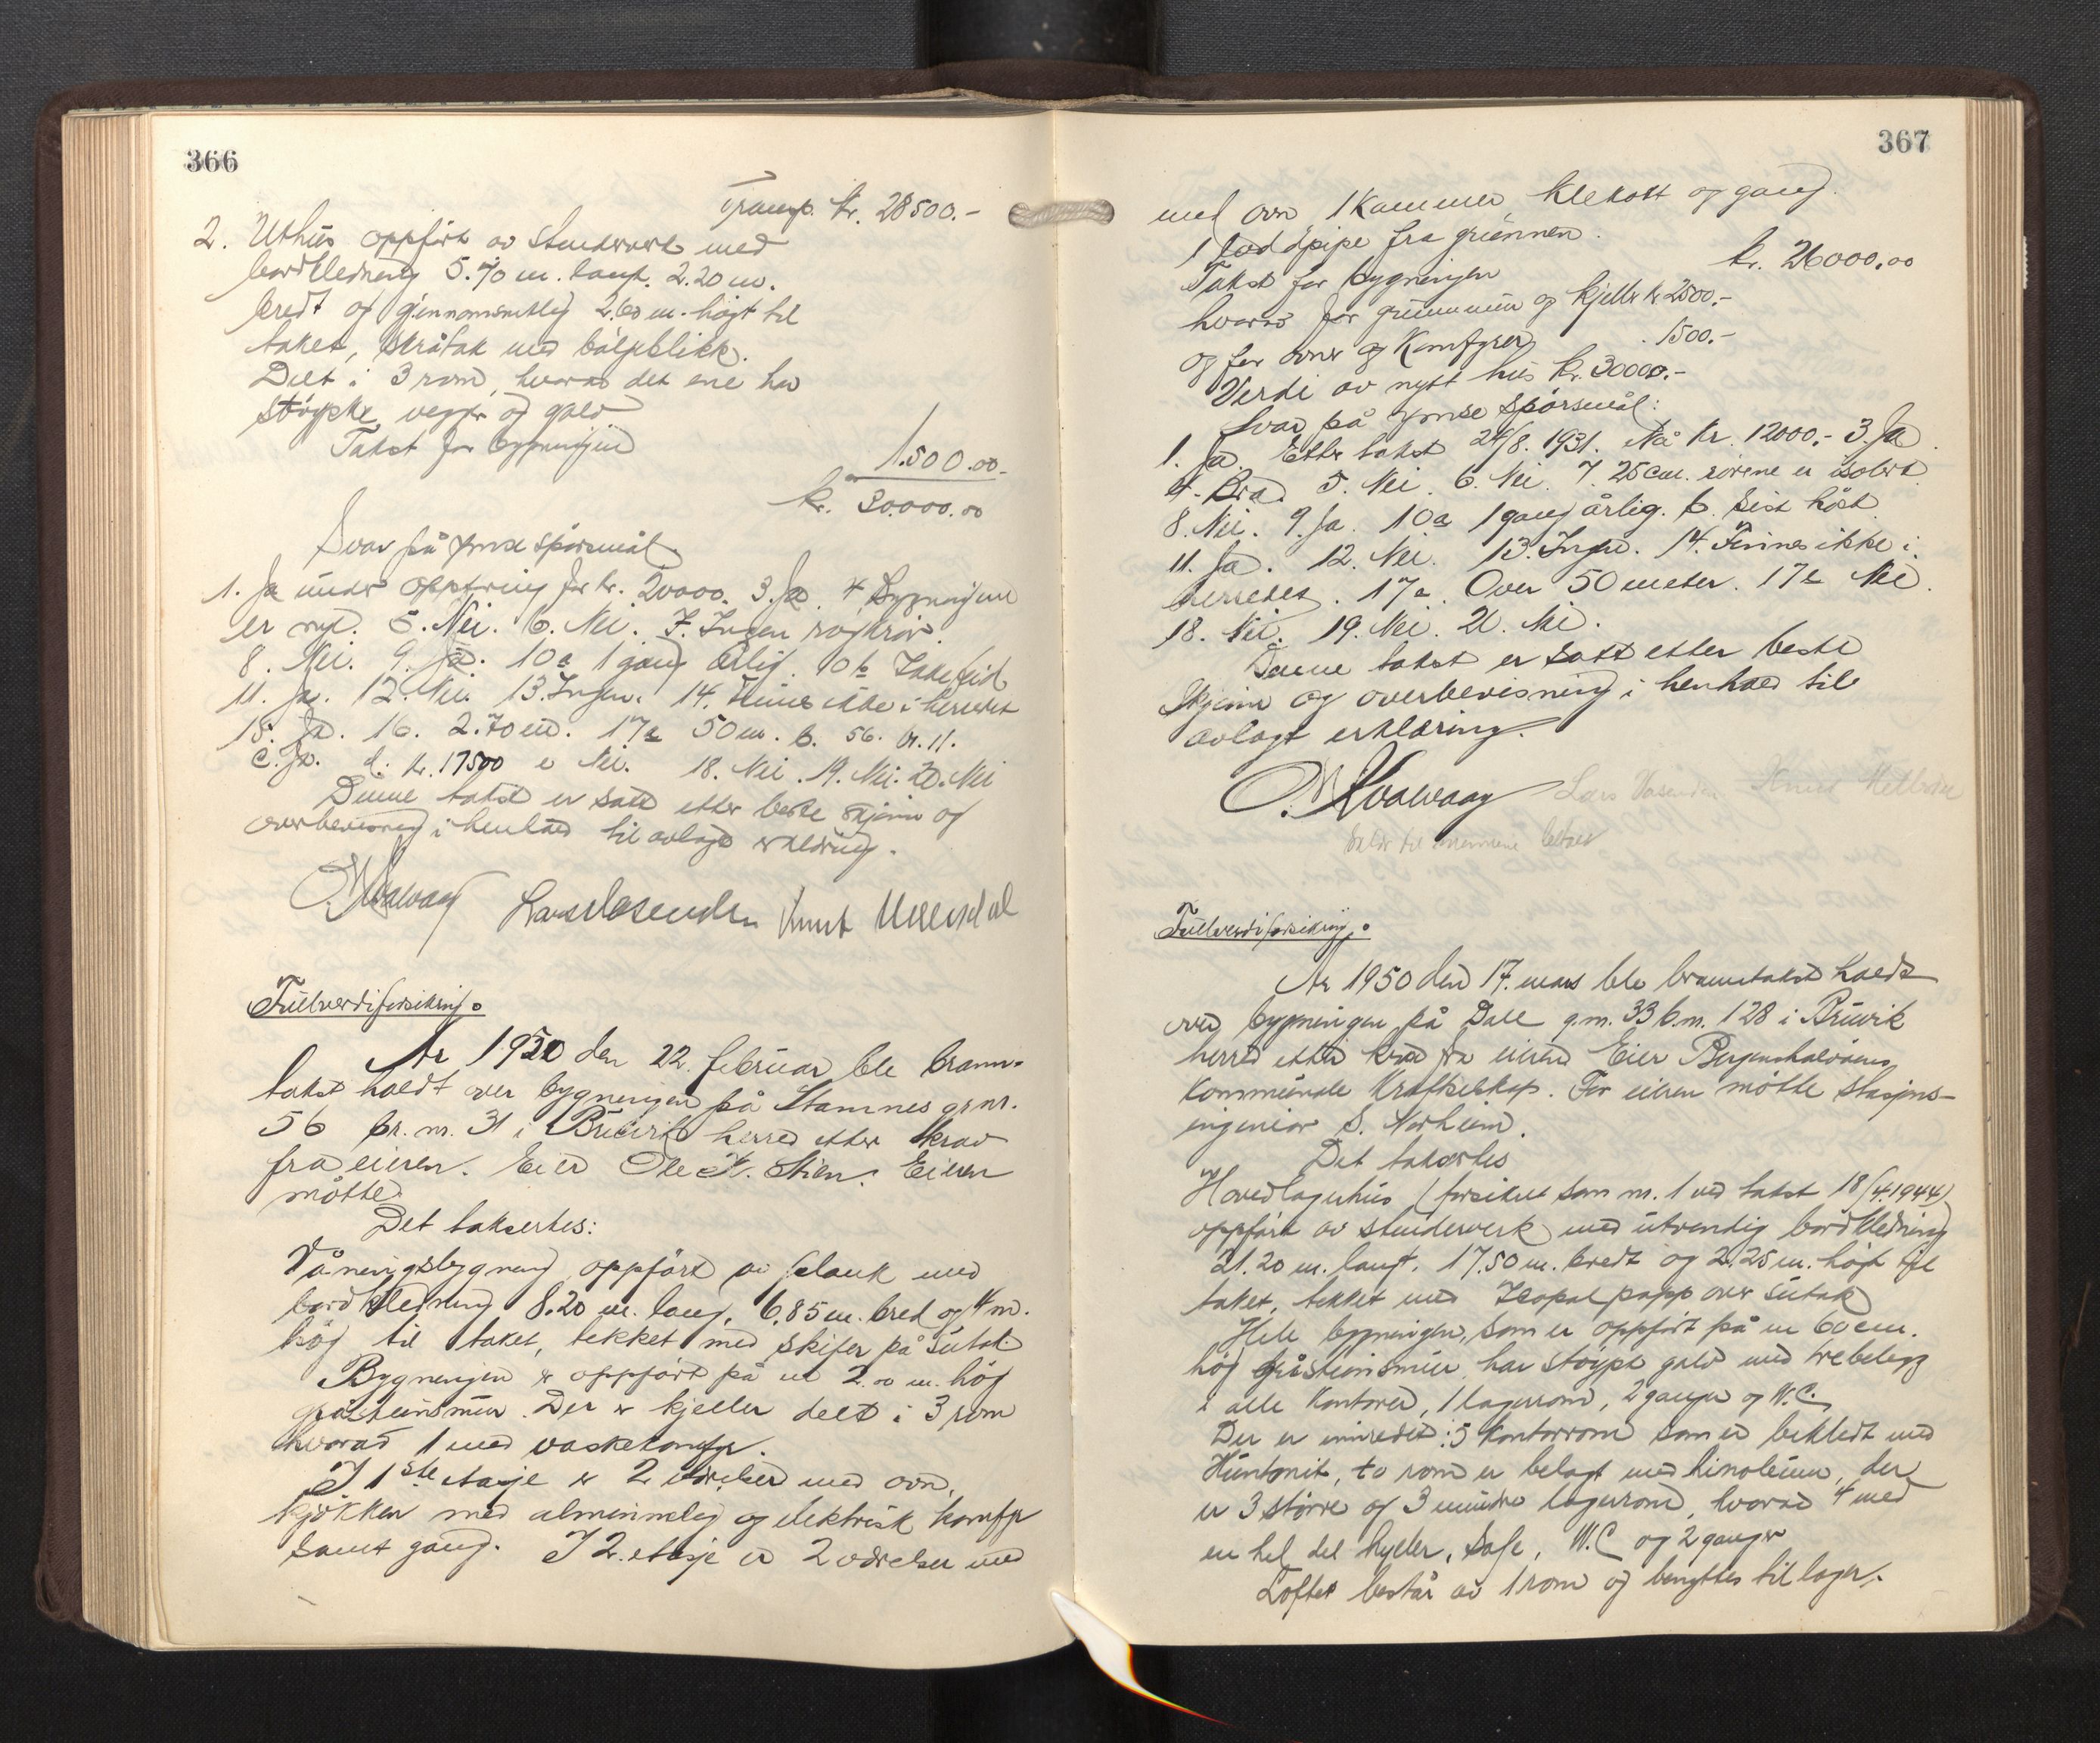 366
Transp. kr. 28500.-
2. Uthus oppført av stenderverk med
bordkledning 5.70 m. langt. 2.20 m.
bredt og gjennomsnitlig 2.60 m. høgt til
taket, skråtak med bølgeblikk.
Delt i 3 rom, hvorav det ene har
støypte vegger og golv
Takst for bygningen
1.500.00.-
kr. 30.000.00
Svar på ymse spørsmål.
1. Ja under oppføring for kr. 20000. 3. Ja. 4 Bygningen
er ny. 5. Nei. 6. Nei. 7. Ingen røykrør.
8. Nei. 9. Ja. 10a 1 gang årlig. 10b
11. Ja. 12. Nei. 13. Ingen. 14. Finnes ikke i herredet
15. Ja. 16. 2.70 m. 17a 50 m. b. 56. br. 11.
c. Ja. d. kr. 17500 e Nei. 18. Nei. 19. Nei. 20. Nei
Denne takst er satt etter beste skjønn og
overbevisning i henhold til avlagt erklæring.
Lars Vasenden Knut
Fullverdiforsikring.
År 1950 den 22. februar ble brann-
takst holdt over bygningen på Stamnes gr.nr.
56 br. nr. 31 i Bruvik herred etter krav
fra eieren. Eier Ole K. Stien. Eieren
møtte.
Det takseres:
Våningsbygning oppført av plank med
bordkledning 8.20 m. lang, 6.85 m. bred og 4 m.
høg til taket, tekket med skifer på sutak
Bygningen er oppført på en 2.00 m. høg
gråsteinsmur. Der er kjeller delt i 3 rom
hvorav 1 med vaskekomfyr.
I 1ste etasje er 2 værelser med ovn,
kjøkken med alminnelig og elektrisk komfyr
samt gang. I 2. etasje er 2 værelser med
367
med ovn 1 kammer, klekott og gang.
1 pipe fra grunnen.
Takst for bygningen
kr. 26000.00
hvorav for grunnmur og kjeller kr 2500.-
og for ovner og komfyrer 1500.-
Verdi av nytt hus kr. 30000.-
Svar på ymse spørsmål:
1. Ja. Etter takst 24/8. 1931. Nå kr. 12000.- 3. Ja.
4. Bra. 5. Nei. 6. Nei. 7. 25 cm. rørene er isolert
8. Nei. 9. Ja. 10a 1 gang årlig. b. sist høst.
11. Ja. 12. Nei. 13. Ingen. 14. Finnes ikke i
herredet. 17a. Over 50 meter. 17e Nei.
18. Nei. 19. Nei. 20. Nei.
Denne takst er satt etter beste
skjønn og overbevisning i henhold til
avlagt erklæring.
Lars Vasenden Knut
Fullverdiforsikring.
År 1950 den 17. mars ble branntakst holdt
over bygningen på Dale g.nr. 33 b.nr. 128 i Bruvik
herred etter krav fra eieren Eier Bergenshalvøens
kommunale Kraftselskap. For eieren møtte stasjons-
ingeniør S. Norheim.
Det takseres
Hovedlagerhus (forsikret som nr. 1 ved takst 18/4.1944)
oppført av stenderverk med utvendig bordkledning
21.20 m. langt, 17.50 m. bredt og 2.25 m. høgt til
taket, tekket med Icopal papp over sutak
Hele bygningen, som er oppført på en 60 cm.
høg gråsteinsmur har støypt golv med trebelegg
i alle kontorer, 1 lagerrom, 2 ganger og W.C.
Der er innredet: 5 kontorrom som er bekledt med
Huntonit, to rom er belagt med linoleum, der
er 3 større og 3 mindre lagerrom, hvorav 4 med
en hel del hyller, safe, W.C og 2 ganger
Loftet består av 1 rom og benyttes til lager.